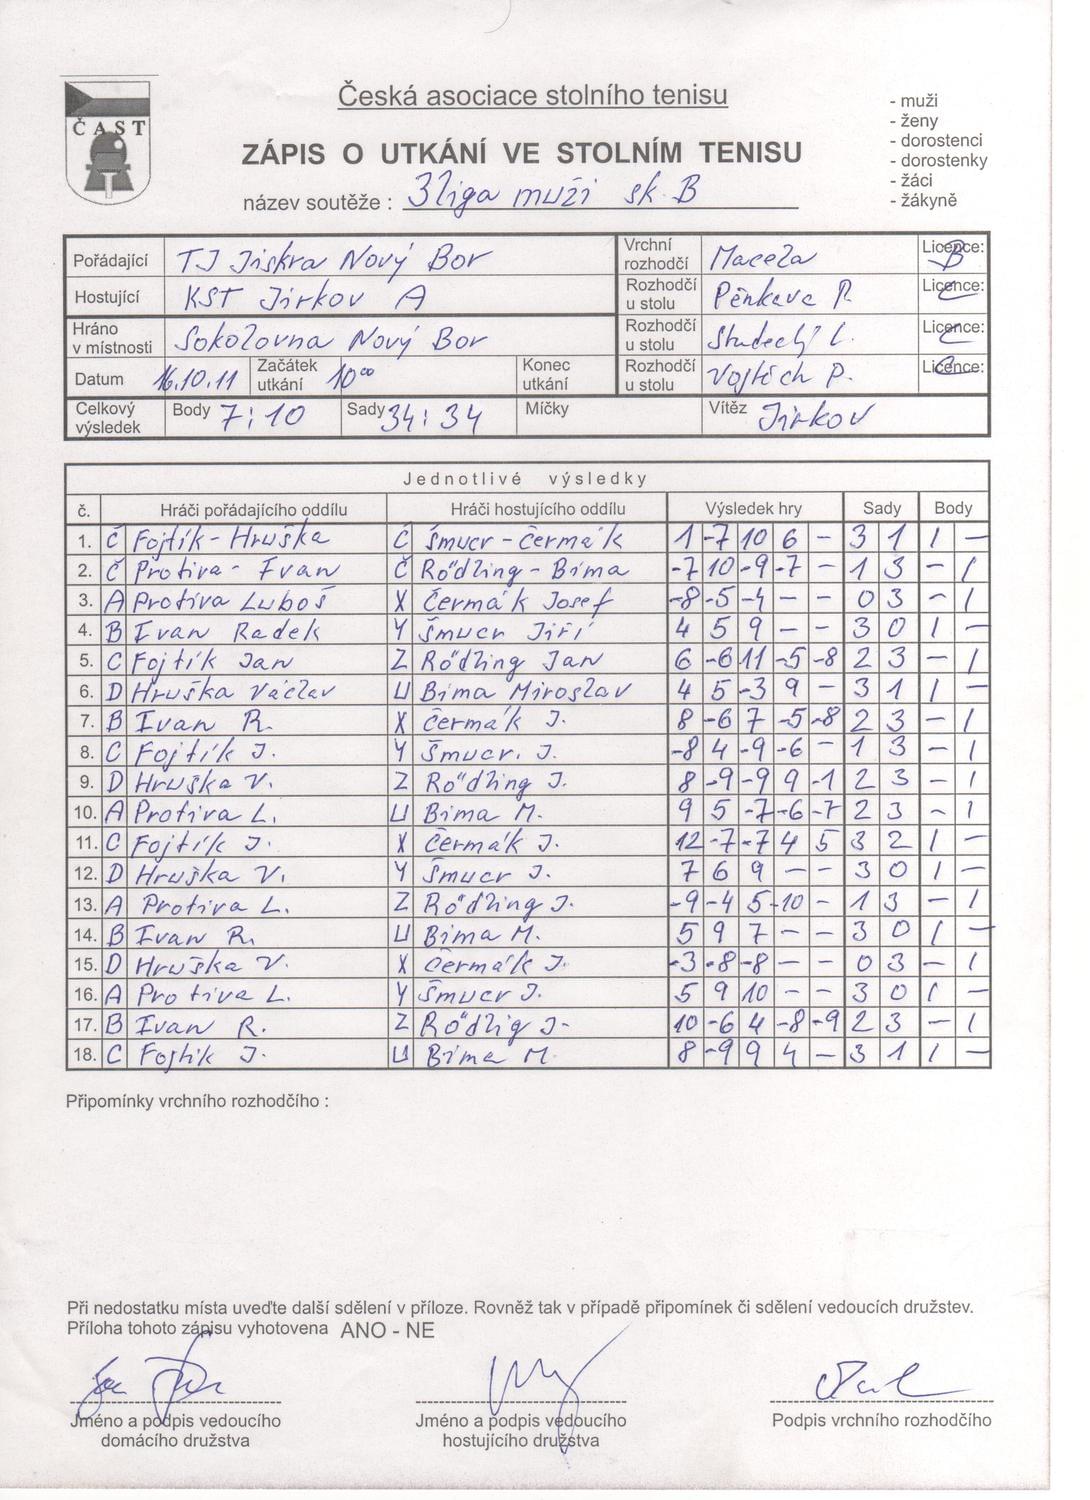 Česká asociace stolního tenisu
ČAST
ZÁPIS O UTKÁNÍ VE STOLNÍM TENISU
název soutěže : 3 liga muži sk. B
- muži
- ženy
- dorostenci
- dorostenky
- žáci
- žákyně
Pořádající TJ Jiskra Nový Bor Vrchní rozhodčí Macela Licence: B
Hostující KST Jirkov A Rozhodčí u stolu Pěnkava P. Licence: C
Hráno v místnosti Sokolovna Nový Bor Rozhodčí u stolu Studecký L. Licence: C
Datum 16.10.11 Začátek utkání 10 00 Konec utkání Rozhodčí u stolu Vojtěch P. Licence: C
Celkový výsledek Body 7:10 Sady 34:34 Míčky Vítěz Jirkov
Jednotlivé výsledky
č. Hráči pořádajícího oddílu Hráči hostujícího oddílu Výsledek hry Sady Body
1. Č Fojtík-Hruška Č Šmucr-Čermák 1 -7 10 6 - 3 1 1 -
2. Č Protiva-Ivan Č Rődling-Bíma -7 10 -9 -7 - 1 3 - 1
3. A Protiva Luboš X Čermák Josef -8 -5 -4 - - 0 3 - 1
4. B Ivan Radek Y Šmucr Jiří 4 5 9 - - 3 0 1 -
5. C Fojtík Jan Z Rődling Jan 6 -6 11 -5 -8 2 3 - 1
6. D Hruška Václav U Bíma Miroslav 4 5 -3 9 - 3 1 1 -
7. B Ivan R. X Čermák J. 8 -6 7 -5 -8 2 3 - 1
8. C Fojtík J. Y Šmucr. J. -8 4 -9 -6 - 1 3 - 1
9. D Hruška V. Z Rődling J. 8 -9 -9 9 -1 2 3 - 1
10. A Protiva L. U Bíma M. 9 5 -7 -6 -7 2 3 - 1
11. C Fojtík J. X Čermák J. 12 -7 -7 4 5 3 2 1 -
12. D Hruška V. Y Šmucr J. 7 6 9 - - 3 0 1 -
13. A Protiva L. Z Rődling J. -9 -4 5 -10 - 1 3 - 1
14. B Ivan R. U Bíma M. 5 9 7 - - 3 0 1 -
15. D Hruška V. X Čermák J. -3 -8 -8 - - 0 3 - 1
16. A Protiva L. Y Šmucr J. 5 9 10 - - 3 0 1 -
17. B Ivan R. Z Rődlig J. 10 -6 4 -8 -9 2 3 - 1
18. C Fojtík J. U Bíma M. 8 -9 9 4 - 3 1 1 -
Připomínky vrchního rozhodčího :
Při nedostatku místa uveďte další sdělení v příloze. Rovněž tak v případě připomínek či sdělení vedoucích družstev.
Příloha tohoto zápisu vyhotovena ANO - NE
Jméno a podpis vedoucího domácího družstva
Jméno a podpis vedoucího hostujícího družstva
Podpis vrchního rozhodčího